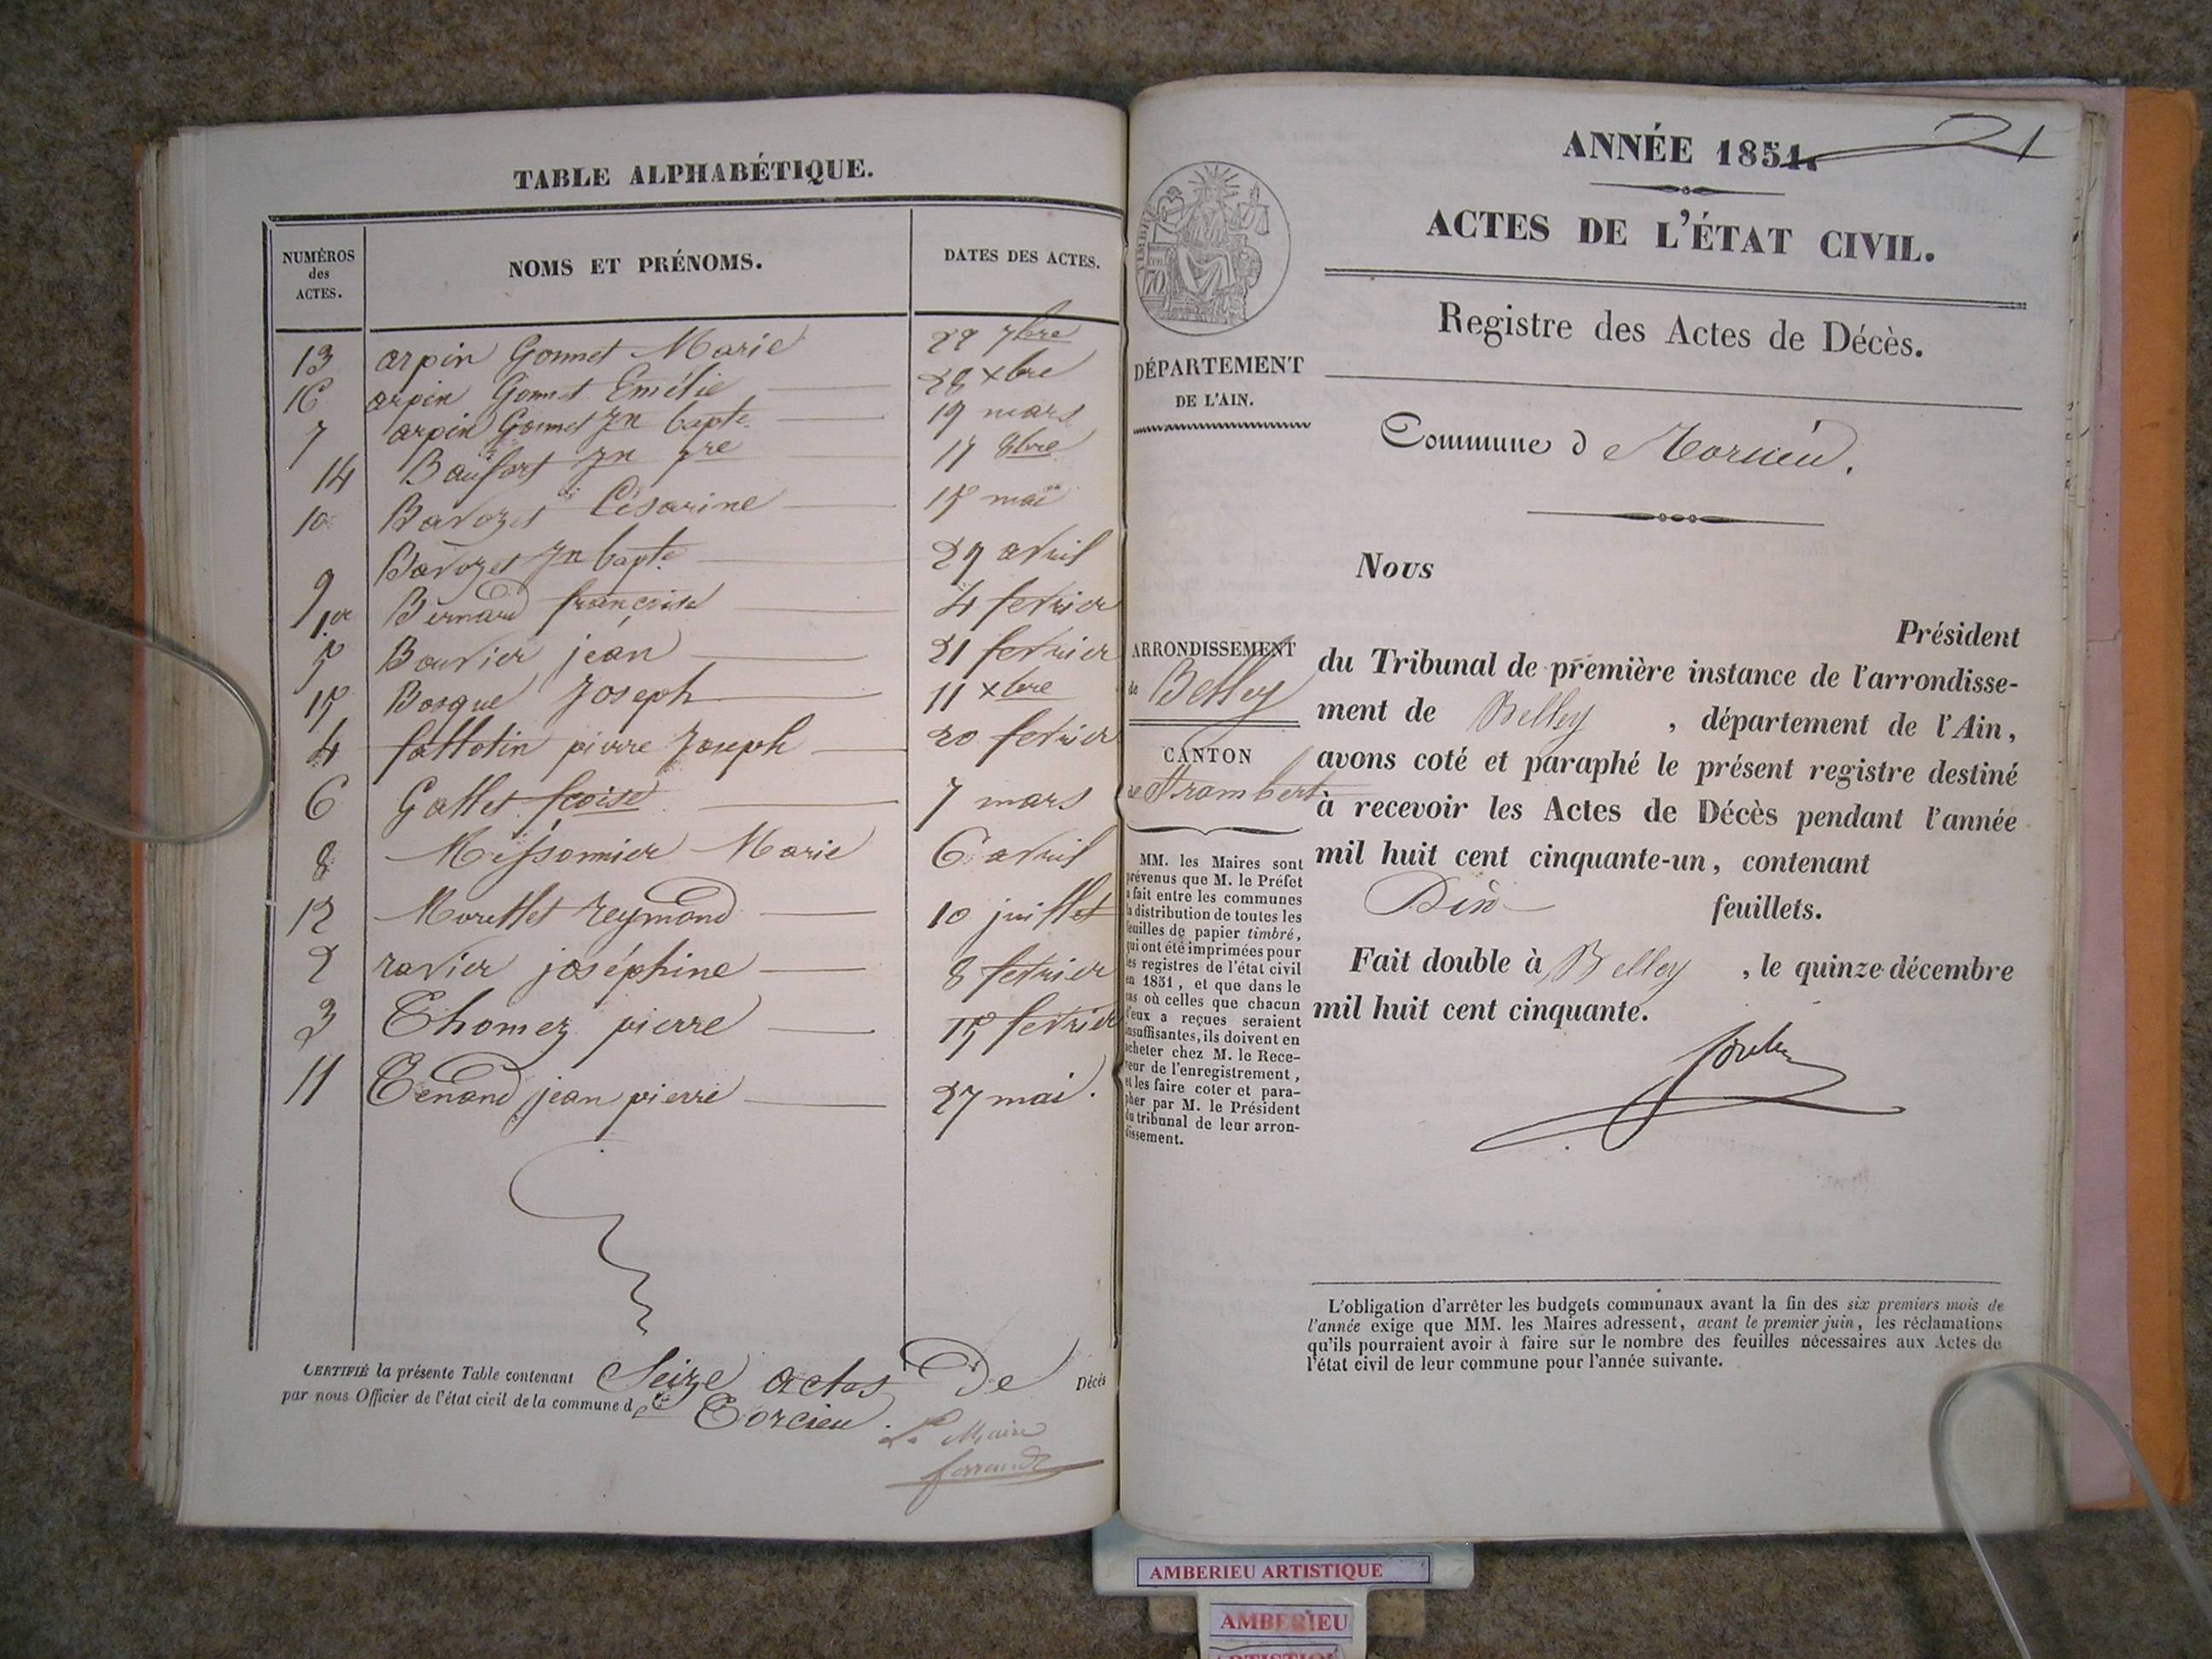 TABLE ALPHABÉTIQUE.
NUMÉROS des ACTES. NOMS ET PRÉNOMS. DATES DES ACTES.
13 arpin Gonnet Marie 22 7bre
16 arpin Gonnet Emélie 28 xbre
7 arpin Gonnet Jn bapte 19 mars
14 Baufort Jn pre 17 8bre
10 Bavozet Césarine 15 mai
9 Bavozet Jn bapte 29 avril
1er Bernard françoise 4 fevrier
5 Bouvier jéan 21 fevrier
15 Bosque Joseph 11 xbre
4 fallotin pierre Joseph 20 fevrier
6 Gallet fcoise 7 mars
8 Messonnier Marie 6 avril
12 Morellet reymond 10 juillet
2 ravier joséphine 8 fevrier
3 Thomez pierre 15 fevrier
11 Tenand jean pierre 27 mai.
CERTIFIÉ la présente Table contenant Seize actes De Décés
par nous Officier de l'état civil de la commune d e Torcieu.
Le Maire
ferrand
ANNÉE 1851. 21
ACTES DE L'ÉTAT CIVIL.
Registre des Actes de Décès.
TIMBRE
70
DÉPARTEMENT
DE L'AIN.
Commune d e Torcieu.
ARRONDISSEMENT
de Belley
CANTON
de St rambert
MM. les Maires sont
prévenus que M. le Préfet
a fait entre les communes
la distribution de toutes les
feuilles de papier timbré,
qui ont été imprimées pour
les registres de l'état civil
en 1851, et que dans le
cas où celles que chacun
d'eux a reçues seraient
insuffisantes, ils doivent en
acheter chez M. le Rece-
veur de l'enregistrement,
et les faire coter et para-
pher par M. le Président
du tribunal de leur arron-
dissement.
Nous
Président
du Tribunal de première instance de l'arrondisse-
ment de Belley, département de l'Ain,
avons coté et paraphé le présent registre destiné
à recevoir les Actes de Décès pendant l'année
mil huit cent cinquante-un, contenant
Dix feuillets.
Fait double à Belley, le quinze décembre
mil huit cent cinquante.
L'obligation d'arrêter les budgets communaux avant la fin des six premiers mois de
l'année exige que MM. les Maires adressent, avant le premier juin, les réclamations
qu'ils pourraient avoir à faire sur le nombre des feuilles nécessaires aux Actes de
l'état civil de leur commune pour l'année suivante.
AMBERIEU ARTISTIQUE
AMBERIEU
ARTISTIQUE